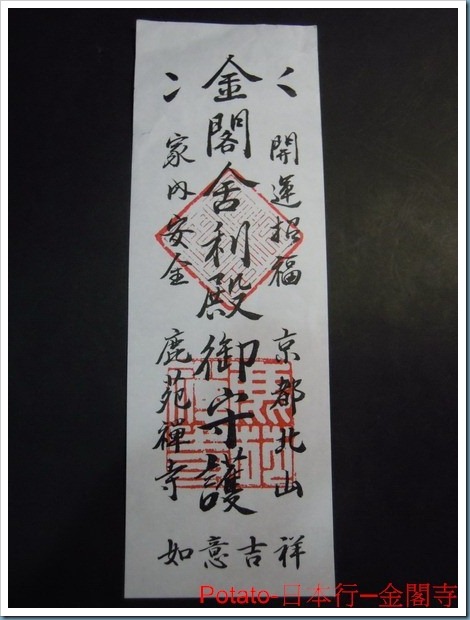 開運招福 京都北山
金閣舎利殿御守護
家内安全 鹿苑禪寺
如意吉祥
Potato-日本行─金閣寺